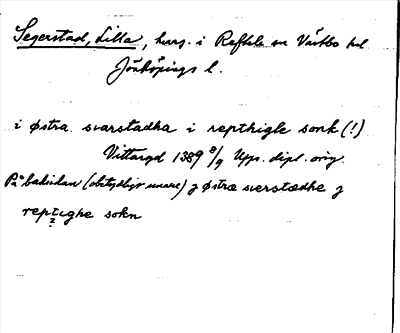 Segerstad, Lilla, herrg. i Reftele sn Västbo hd
Jönköpings l.
i østra svarstadha i repthigle sonk (!)
Vittaryd 1389 8/9 Upps. dipl. orig.
På baksidan (obetydligt senare) j østræ sverstædhe j
reptighe sokn